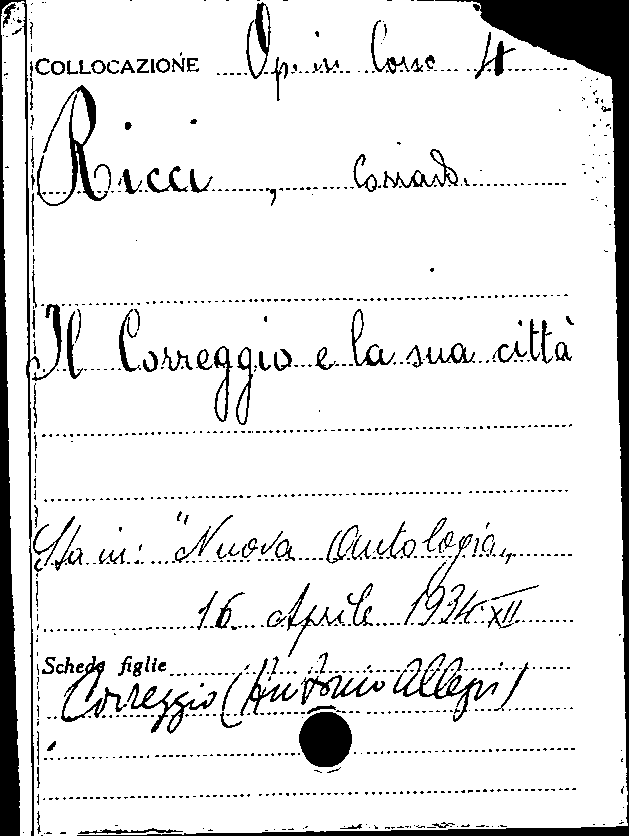 COLLOCAZIONE Op. in Corso 4
Ricci, Corrado.
Il Correggio e la sua città
Sta in: "Nuova Antologia„
16 Aprile 1934 XII
Schede figlie
Correggio (Antonio Allegri)